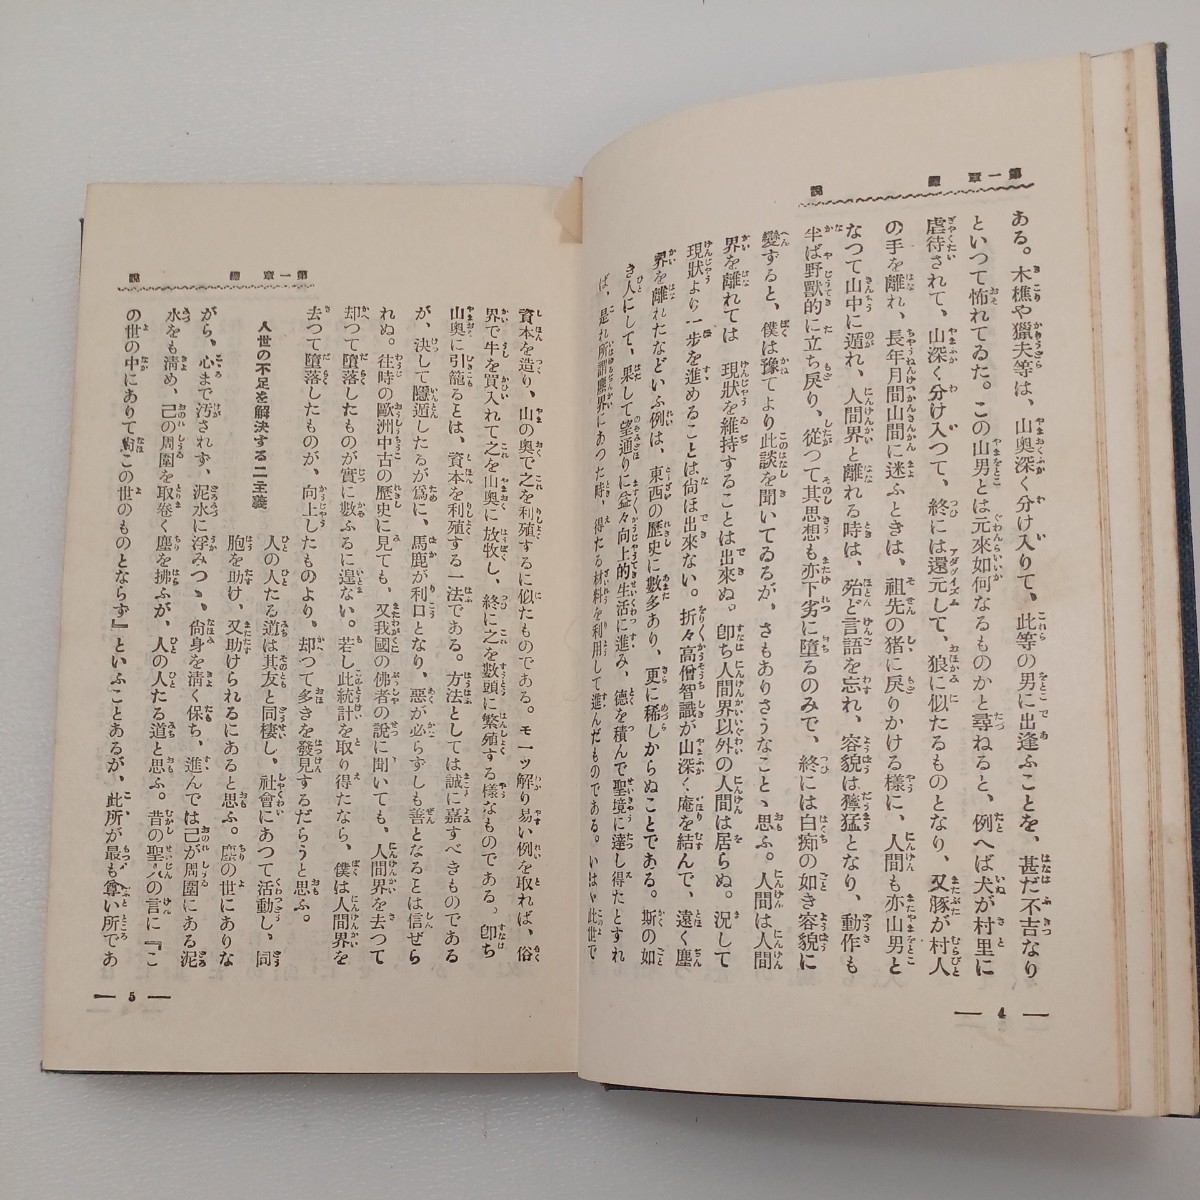 第一章 總説
ある。木樵や獵夫等は、山奥深く分け入りて、此等の男に出逢ふことを、甚だ不吉なり
といつて怖れてゐた。この山男とは元來如何なるものかと尋ねると、例へば犬が村里に
虐待されて、山深く分け入つて、終には還元して、狼に似たるものとなり、又豚が村人
の手を離れ、長年月間山間に迷ふときは、祖先の猪に戻りかける樣に、人間も亦山男と
なつて山中に遁れ、人間界と離れる時は、殆ど言語を忘れ、容貌は獰猛となり、動作も
半ば野獸的に立ち戻り、從つて其思想も亦下劣に墮るのみで、終には白痴の如き容貌に
變ずると、僕は豫てより此談を聞いてゐるが、さもありさうなことゝ思ふ。人間は人間
界を離れては 現狀を維持することは出來ぬ。卽ち人間界以外の人間は居らぬ。況して
現狀より一步を進めることは尙ほ出來ない。折々高僧智識が山深く庵を結んで、遠く塵
界を離れたなどいふ例は、東西の歷史に數多あり、更に稀しからぬことである。斯の如
き人にして、果して望通りに益々向上的生活に進み、德を積んで聖境に達し得たとすれ
ば、是れ所謂塵界にあつた時、得たる材料を利用して進んだものである。いはゞ此世で
4
第一章 總説
資本を造り、山の奥で之を利殖するに似たものである。モ一ッ解り易い例を取れば、俗
界で牛を買入れて之を山奥に放牧し、終に之を數頭に繁殖する樣なものである。卽ち
山奥に引籠るとは、資本を利殖する一法である。方法としては誠に嘉すべきものである
が、決して隱遁したるが爲に、馬鹿が利口となり、惡が必らずしも善となることは信ぜら
れぬ。往時の歐洲中古の歷史に見ても、又我國の佛者の說に聞いても、人間界を去つて
却つて墮落したものが實に數ふるに遑ない。若し此統計を取り得たなら、僕は人間界を
去つて墮落したものが、向上したものより、却つて多きを發見するだらうと思ふ。
人世の不足を解決する二主義
人の人たる道は其友と同棲し、社會にあつて活動し、同
胞を助け、又助けられるにあると思ふ。塵の世にありな
がら、心まで汚されず、泥水に浮みつゝ、尙身を清く保ち、進んでは己が周圍にある泥
水をも淸め、己の周圍を取卷く塵を拂ふが、人の人たる道と思ふ。昔の聖人の言に『こ
の世の中にありて尙この世のものとならず』といふことあるが、此所が最も尊い所であ
5